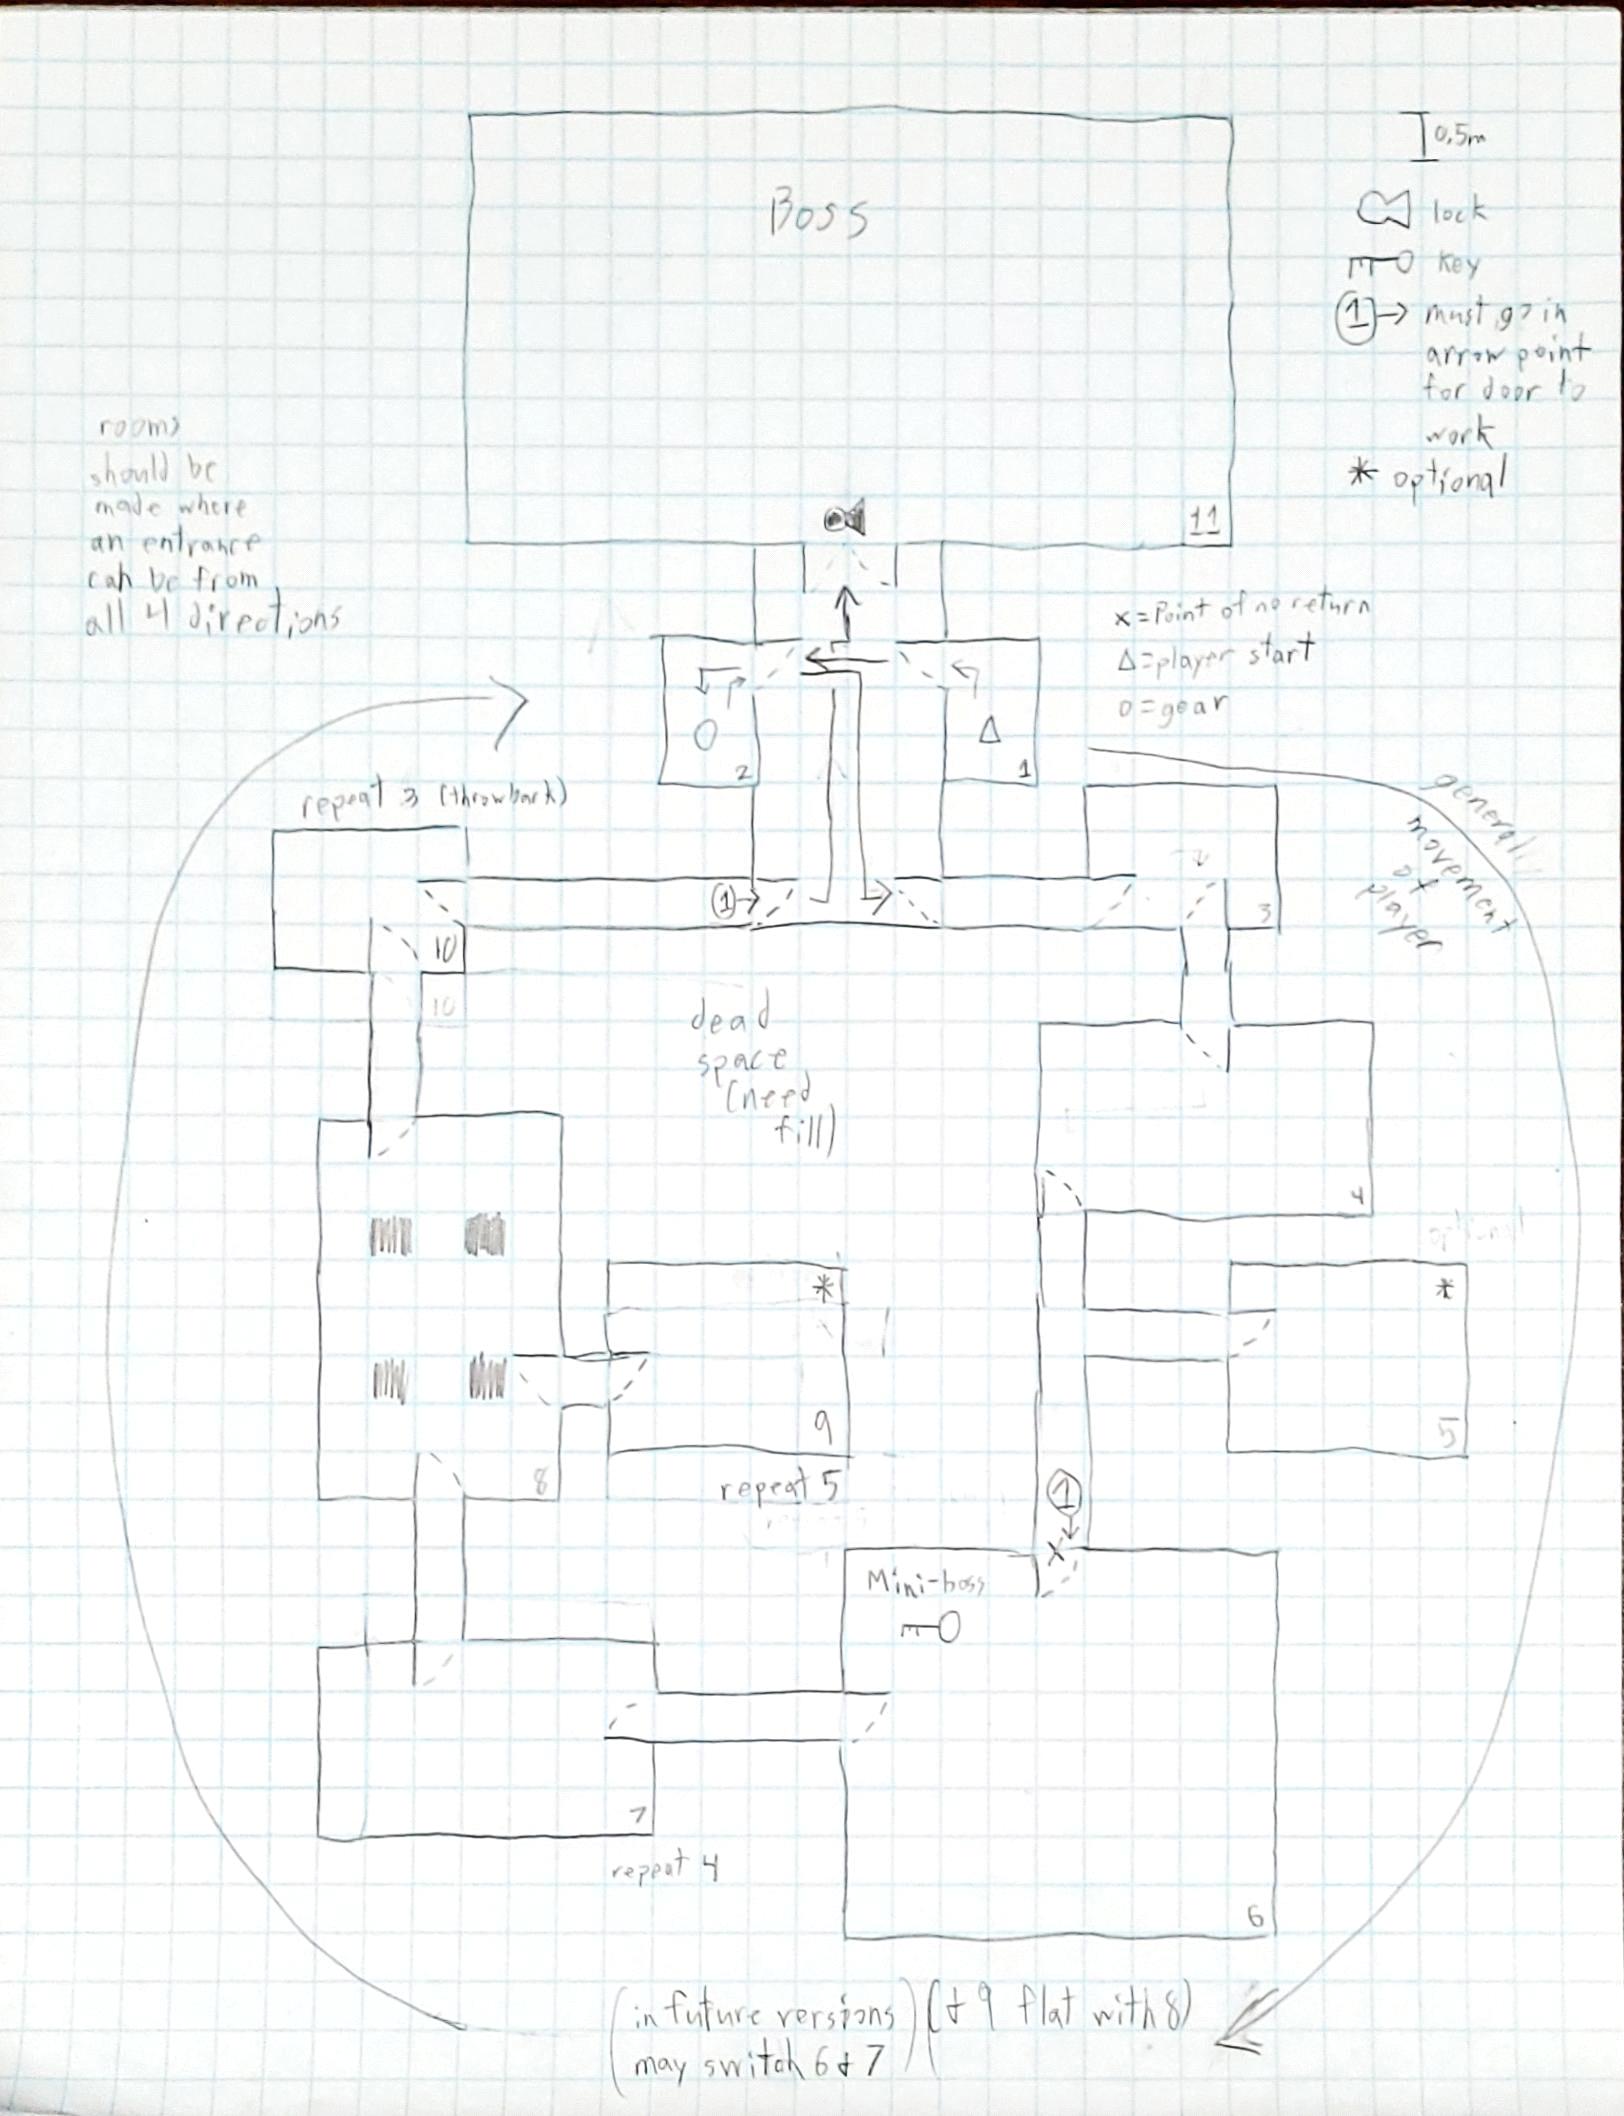 Boss
0.5m
lock
key
1 → must go in
arrow point
for door to
work
* optional
11
rooms
should be
made where
an entrance
can be from
all 4 directions
x = Point of no return
Δ = player start
o = gear
2
1
general
movement
of
player
repeat 3 (throwback)
1
3
10
10
dead
space
(need
fill)
4
*
*
9
5
8
repeat 5
1
x
Mini-boss
7
repeat 4
6
(in future versions
may switch 6 & 7)
(& 9 flat with 8)